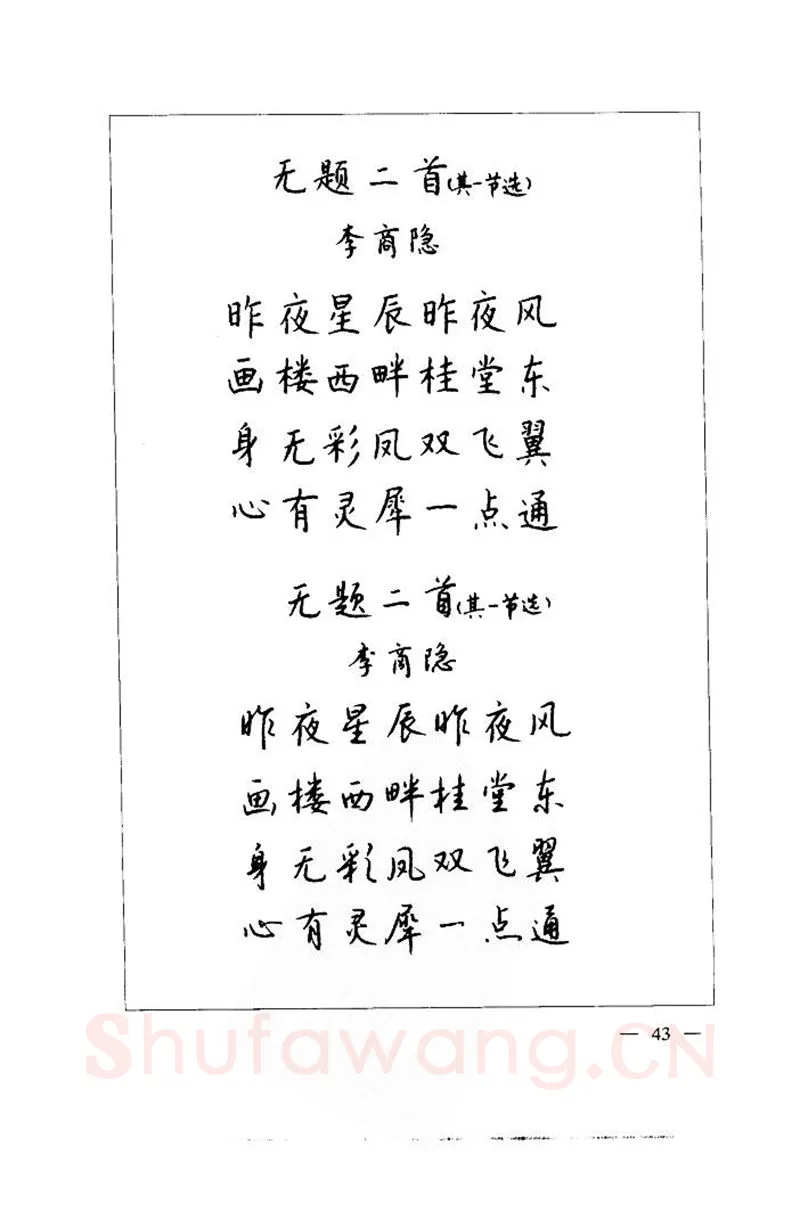 无题二首(其一节选)
李商隐
昨夜星辰昨夜风
画楼西畔桂堂东
身无彩凤双飞翼
心有灵犀一点通
无题二首(其一节选)
李商隐
昨夜星辰昨夜风
画楼西畔桂堂东
身无彩凤双飞翼
心有灵犀一点通
— 43 —
Shufawang.CN